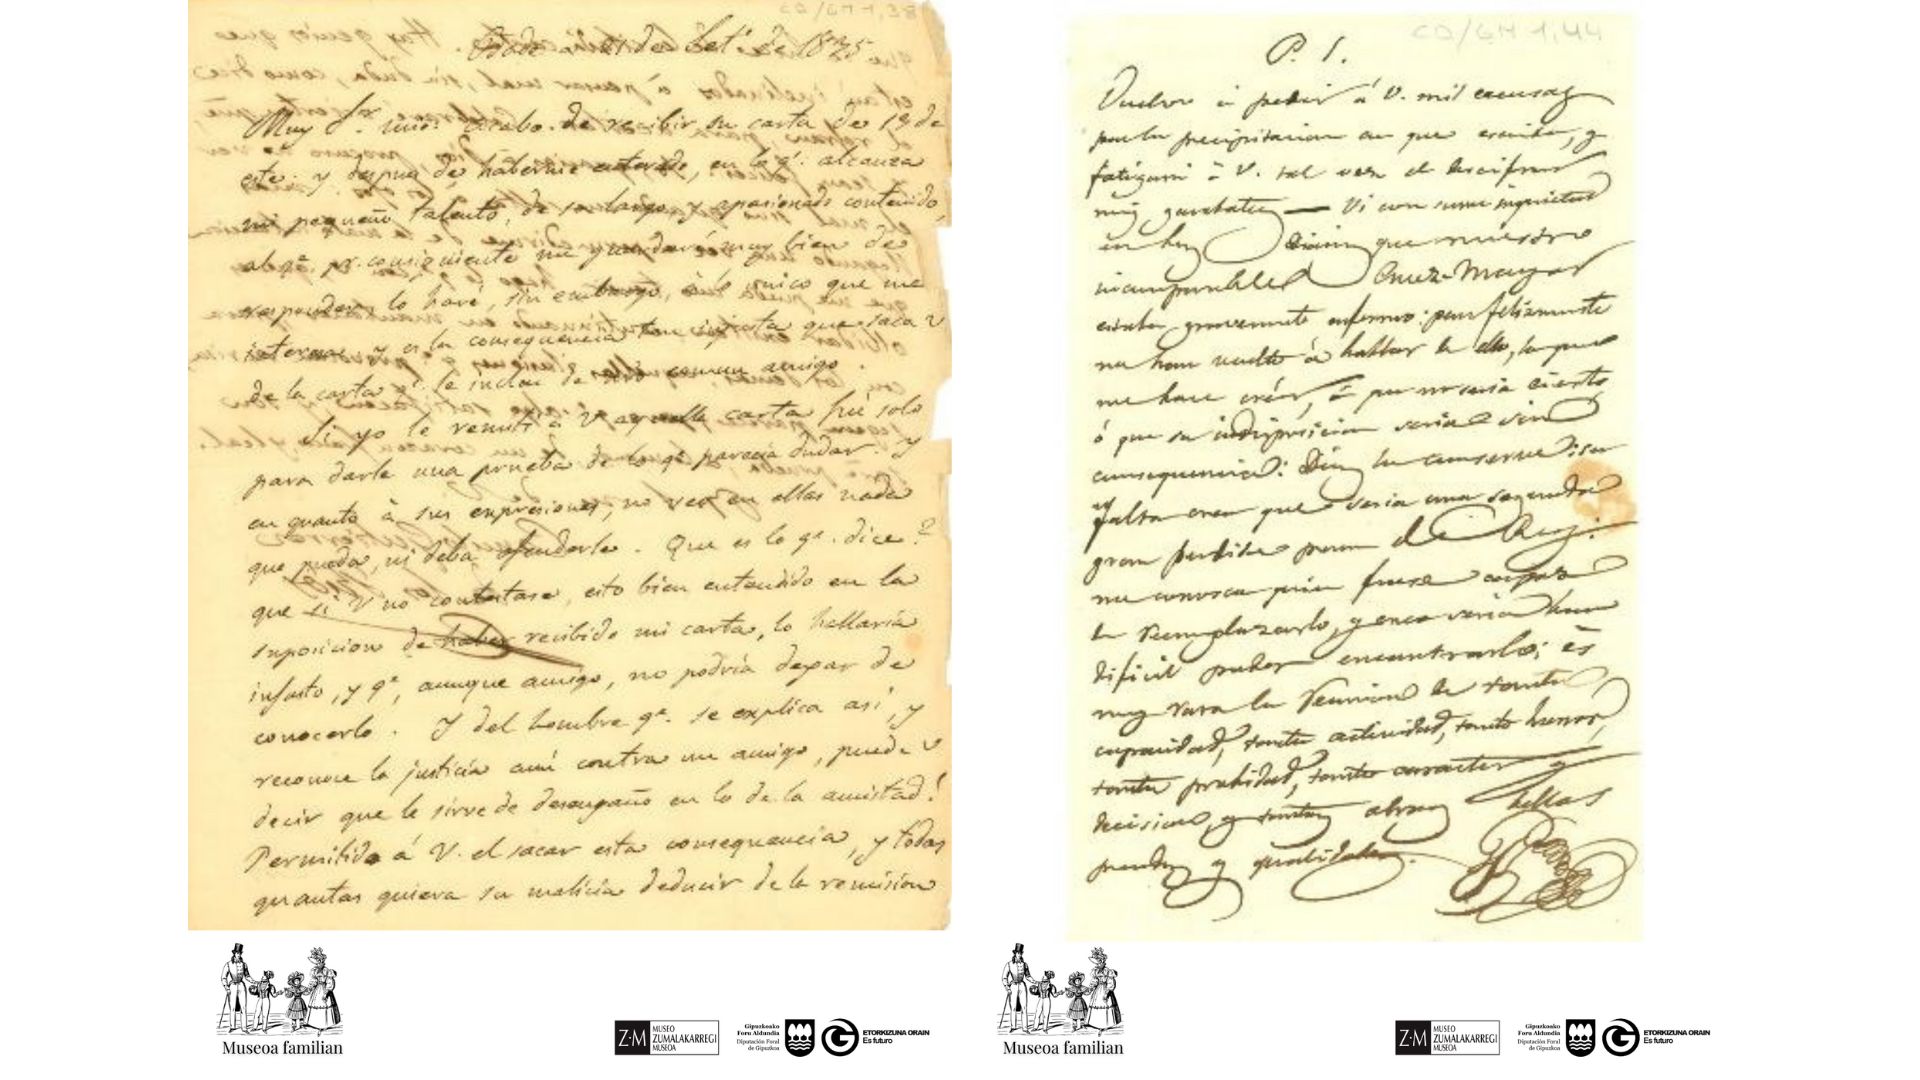 CD/GM 1,38
de Set.e de 1825
Muy Sr. mio: Acabo de recibir su carta de 13 de
este: y despues de haberme enterado, en lo qe. alcanza
mi pequeño talento, de su largo y apasionado contenido,
pr. consiguiente me guardaré muy bien de
responder, lo haré, sin embargo, á lo unico que me
interesa y es la consecuencia tan injusta que saca V
de la carta qe. le inclui de comun amigo.
Si yo le remiti á V aquella carta fué solo
para darle una prueba de lo qe. parecia dudar: y
en quanto á sus expresiones, no veo en ellas nada
que pueda, ni deba ofenderle. Que es lo qe. dice?
que si V no contestase, esto bien entendido en la
suposicion de haber recibido mi carta, lo hallaria
injusto, y qe, aunque amigo, no podria dejar de
conocerlo. Y del hombre qe. se explica asi, y
reconoce la justicia aun contra un amigo, puede V
decir que le sirve de desengaño en lo de la amistad!
Permitido á V. el sacar esta consequencia, y todas
quantas quiera su malicia deducir de la remision
CD/GM 1,44
P. S.
Vuelvo á pedir á V. mil excusas
por la precipitacion en que escribo, y
fatigará á V. tal vez el descifrar
mis garabatos — Vi con suma inquietud
en los Diarios que nuestro
incomparable Cruz-Mayor
estaba gravemente enfermo: pero felizmente
no han vuelto á hablar de ello, lo que
me hace creér, ó que no seria cierto
ó que su indisposicion seria sin
consequencia: Dios lo conserve: su
falta creo que seria una segunda
gran perdida para el Rey:
no conozco quien fuese capaz
de reemplazarlo, y creo seria bien
dificil poder encontrarlo; és
muy rara la reunion de tanta
capacidad, tanta actividad, tanto honor,
tanta probidad, tanto caracter y
decision, y tantas otras bellas
prendas y qualidades.
Museoa familian
Z·M MUSEO ZUMALAKARREGI MUSEOA
Gipuzkoako Foru Aldundia
Diputación Foral de Gipuzkoa
ETORKIZUNA ORAIN
Es futuro
Museoa familian
Z·M MUSEO ZUMALAKARREGI MUSEOA
Gipuzkoako Foru Aldundia
Diputación Foral de Gipuzkoa
ETORKIZUNA ORAIN
Es futuro